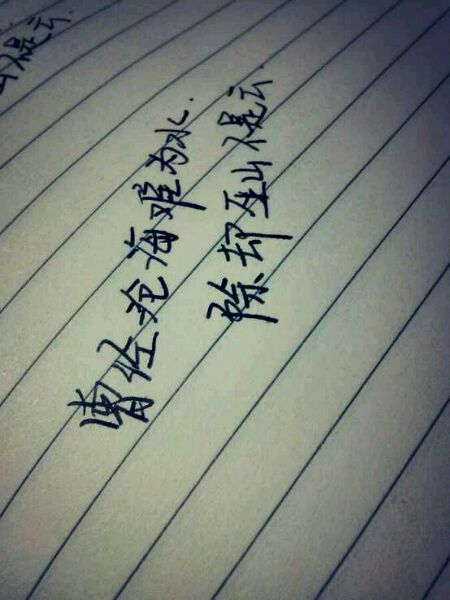 山不是云.
曾经沧海难为水.
除却巫山不是云.